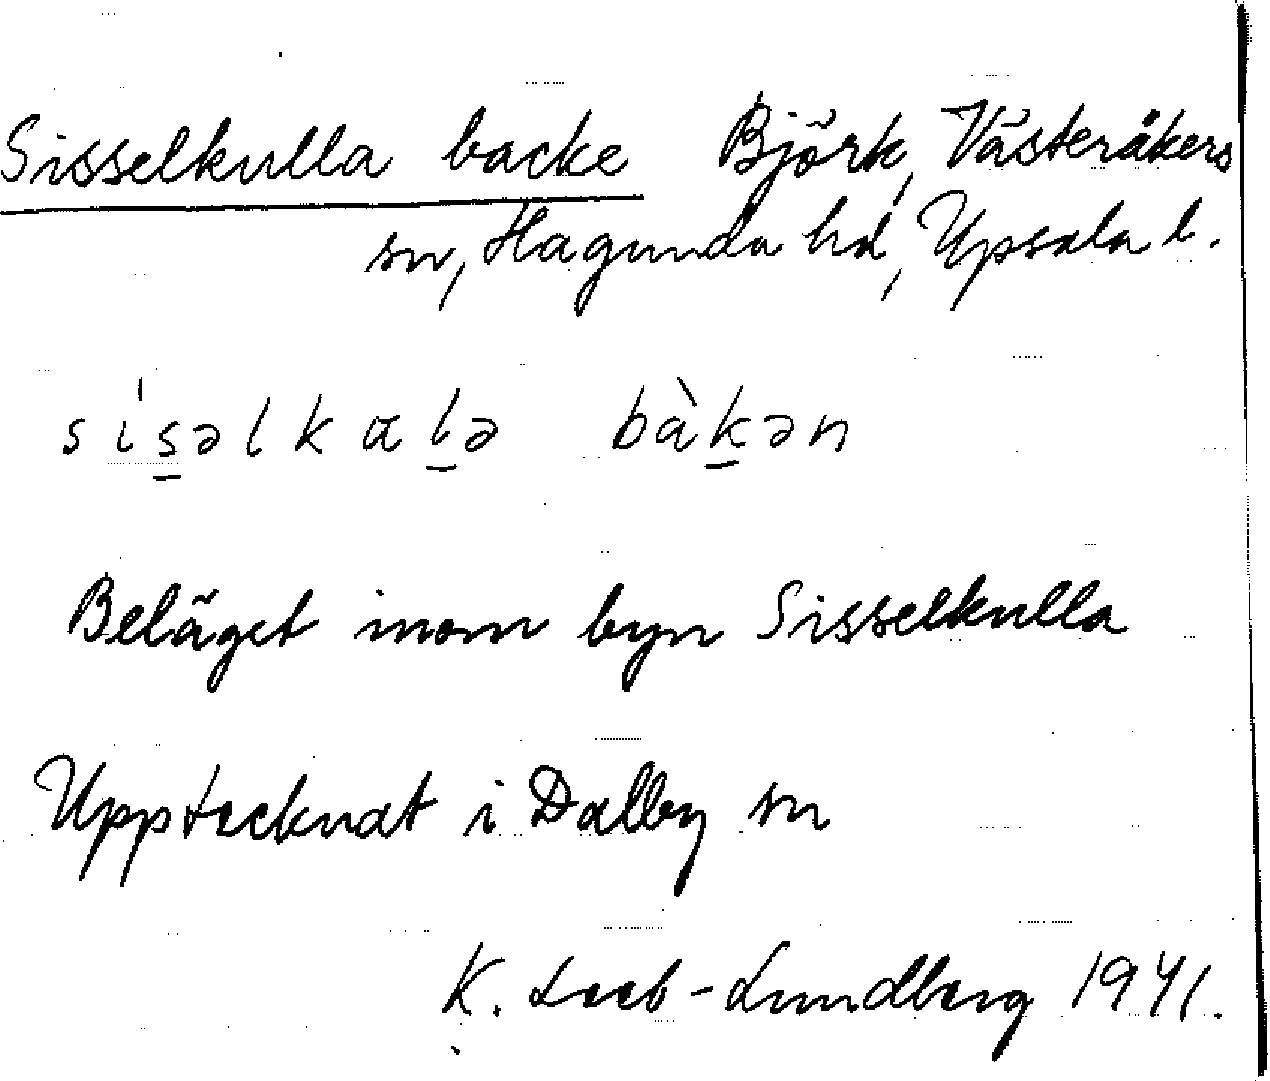 Sisselkulla backe Björk, Västeråkers
sn, Hagunda hd, Upsala l.
sís̲əlkal̲ə bàk̲ən
Beläget inom byn Sisselkulla
Upptecknat i Dalby sn
K. Leeb-Lundberg 1941.